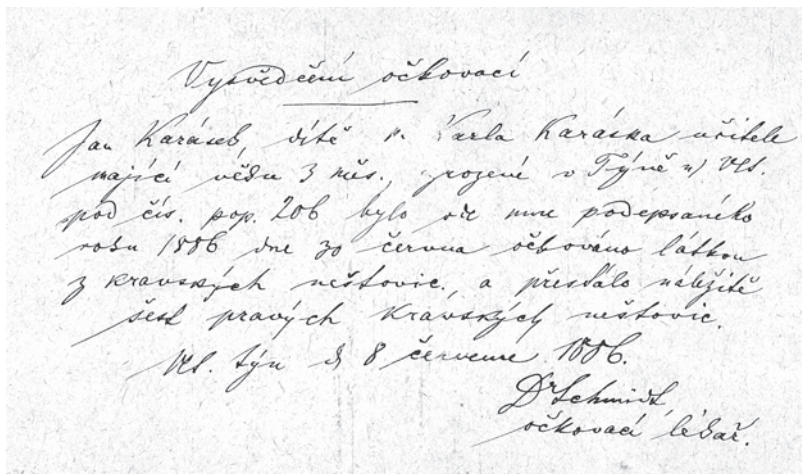 Vysvědčení očkovací
Jan Karásek, dítě p. Karla Karáska učitele
mající věku 3 měs. zrozené v Týně n/ Vlt.
pod čís. pop. 206 bylo ode mne podepsaného
roku 1886 dne 30 června očkováno látkou
z kravských neštovic, a přestálo náležitě
šest pravých kravských neštovic.
Vlt. Týn d 8 července 1886.
Dr Schmidt
očkovací lékař.